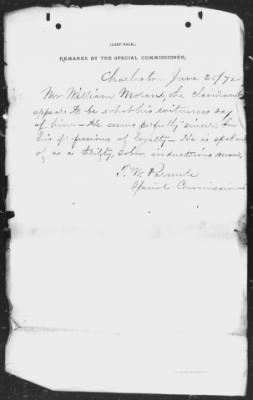 (LAST PAGE.)
REMARKS BY THE SPECIAL COMMISSIONER.
Charleston June 25/72
Mr William Morant, the claimant
appears to be what his witnesses say
of him - He seems perfectly sincere in
his professions of loyalty - He is spoken
of as a thrifty, sober, industrious man,
Special Commissioner